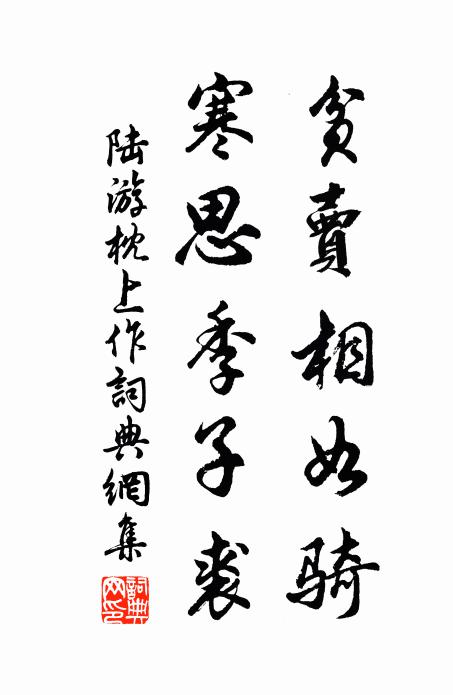 貧賣相如騎
寒思季子裘
陸游枕上作詞典網集
詞典網印